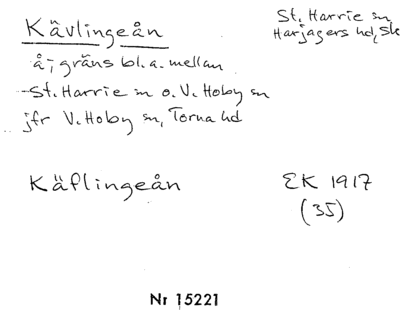 Kävlingeån
St. Harrie sn
Harjagers hd, Sk
å; gräns bl.a. mellan
St. Harrie sn o. V. Hoby sn
jfr V. Hoby sn, Torna hd
Käflingeån
EK 1917
(35)
Nr 15221